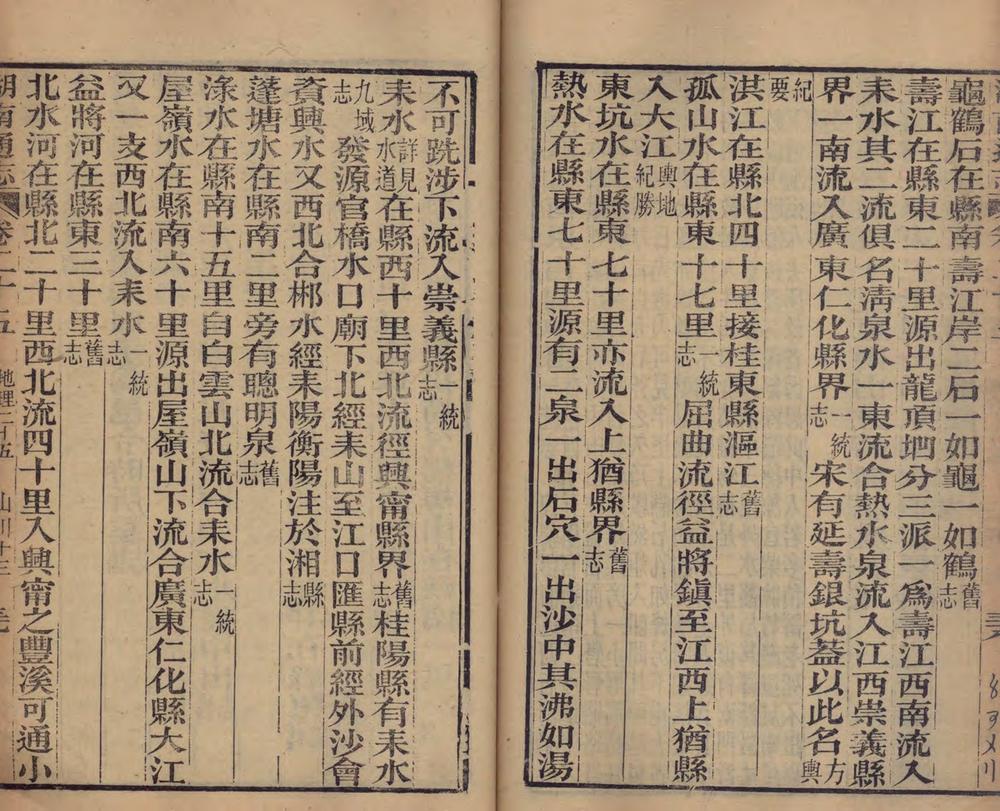 龜鶴石在縣南壽江岸二石一如龜一如鶴舊志
壽江在縣東二十里源出龍頂坳分三派一爲壽江西南流入
耒水其二流俱名淸泉水一東流合熱水泉流入江西崇義縣
界一南流入廣東仁化縣界一統志宋有延壽銀坑蓋以此名方輿
紀要
洪江在縣北四十里接桂東縣漚江舊志
孤山水在縣東十七里一統志屈曲流徑益將鎮至江西上猶縣
入大江輿地紀勝
東坑水在縣東七十里亦流入上猶縣界舊志
熱水在縣東七十里源有二泉一出石穴一出沙中其沸如湯
不可跣涉下流入崇義縣一統志
耒水詳見水道在縣西十里西北流徑興甯縣界舊志桂陽縣有耒水
九域志發源官橋水口廟下北經耒山至江口匯縣前經外沙會
資興水又西北合郴水經耒陽衡陽注於湘縣志
蓬塘水在縣南二里旁有聰明泉舊志
淥水在縣南十五里自白雲山北流合耒水一統志
屋嶺水在縣南六十里源出屋嶺山下流合廣東仁化縣大江
又一支西北流入耒水一統志
益將河在縣東三十里舊志
北水河在縣北二十里西北流四十里入興甯之豐溪可通小
湖南通志 卷二十五 地理二十五 山川十三